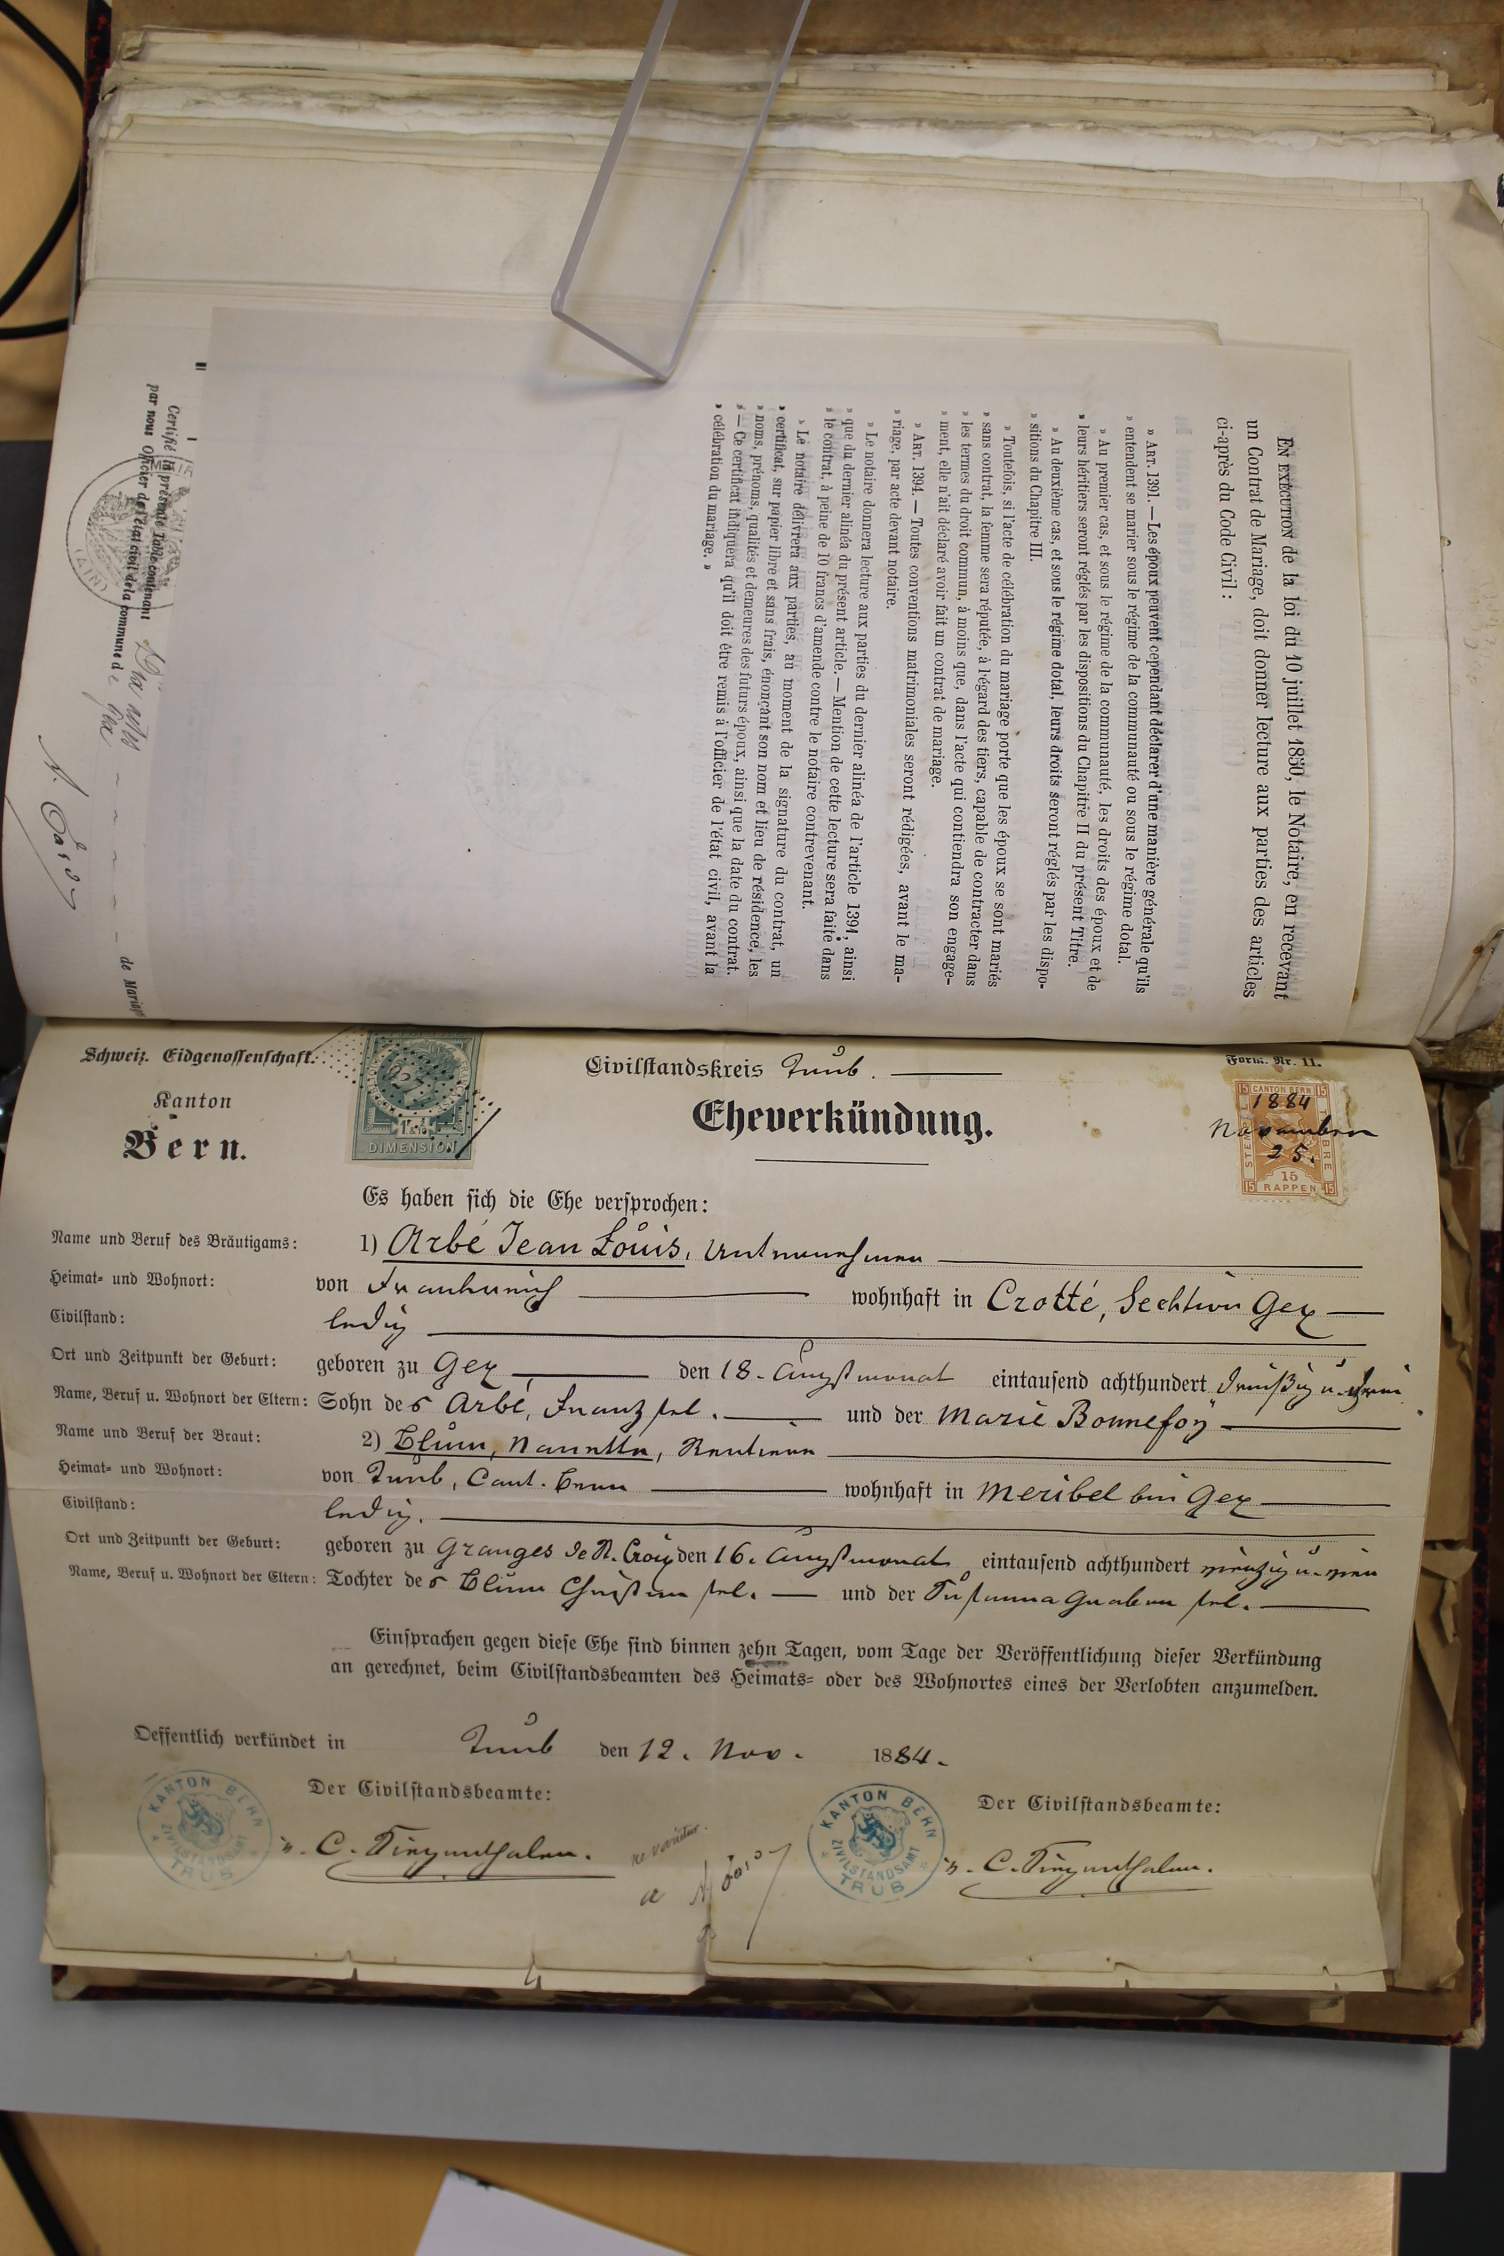 EN EXÉCUTION de la loi du 10 juillet 1850, le Notaire, en recevant
un Contrat de Mariage, doit donner lecture aux parties des articles
ci-après du Code Civil :
» ART. 1391. — Les époux peuvent cependant déclarer d'une manière générale qu'ils
» entendent se marier sous le régime de la communauté ou sous le régime dotal.
» Au premier cas, et sous le régime de la communauté, les droits des époux et de
» leurs héritiers seront réglés par les dispositions du Chapitre II du présent Titre.
» Au deuxième cas, et sous le régime dotal, leurs droits seront réglés par les dispo-
» sitions du Chapitre III.
» Toutefois, si l'acte de célébration du mariage porte que les époux se sont mariés
» sans contrat, la femme sera réputée, à l'égard des tiers, capable de contracter dans
» les termes du droit commun, à moins que, dans l'acte qui contiendra son engage-
» ment, elle n'ait déclaré avoir fait un contrat de mariage.
» ART. 1394. — Toutes conventions matrimoniales seront rédigées, avant le ma-
» riage, par acte devant notaire.
» Le notaire donnera lecture aux parties du dernier alinéa de l'article 1391, ainsi
» que du dernier alinéa du présent article. — Mention de cette lecture sera faite dans
» le contrat, à peine de 10 francs d'amende contre le notaire contrevenant.
» Le notaire délivrera aux parties, au moment de la signature du contrat, un
» certificat, sur papier libre et sans frais, énonçant son nom et lieu de résidence, les
» noms, prénoms, qualités et demeures des futurs époux, ainsi que la date du contrat.
» — Ce certificat indiquera qu'il doit être remis à l'officier de l'état civil, avant la
» célébration du mariage. »
Certifié la présente Table contenant Dix actes de Mariage
par nous Officier de l'état civil de la commune de Gex
(AIN)
Schweiz. Eidgenossenschaft.
Kanton
Bern.
DIMENSION
Civilstandskreis Trub.
Form. Nr. 11.
Eheverkündung.
CANTON BERN
15 15
STEMPEL TIMBRE
1884
November
25.
15
RAPPEN
15 15
Es haben sich die Ehe versprochen:
Name und Beruf des Bräutigams: 1) Arbé Jean Louis, Unternehmer
Heimat= und Wohnort: von Frankreich wohnhaft in Crotté, Sechtion Gex
Civilstand: ledig
Ort und Zeitpunkt der Geburt: geboren zu Gex den 18. Augstmonat eintausend achthundert dreißig u. drei
Name, Beruf u. Wohnort der Eltern: Sohn des Arbé, Franz sel. und der Marie Bonnefoy
Name und Beruf der Braut: 2) Blum, Nanette, Rentnerin
Heimat= und Wohnort: von Trub, Cant. Bern wohnhaft in Meribel bei Gex
Civilstand: ledig.
Ort und Zeitpunkt der Geburt: geboren zu Granges de St. Croix den 16. Augstmonat eintausend achthundert vierzig u. vier
Name, Beruf u. Wohnort der Eltern: Tochter des Blum Christian sel. und der Susanna Graber sel.
Einsprachen gegen diese Ehe sind binnen zehn Tagen, vom Tage der Veröffentlichung dieser Verkündung
an gerechnet, beim Civilstandsbeamten des Heimats= oder des Wohnortes eines der Verlobten anzumelden.
Oeffentlich verkündet in Trub den 12. Nov. 1884.
Der Civilstandsbeamte: Der Civilstandsbeamte:
KANTON BERN ZIVILSTANDSAMT TRUB
KANTON BERN ZIVILSTANDSAMT TRUB